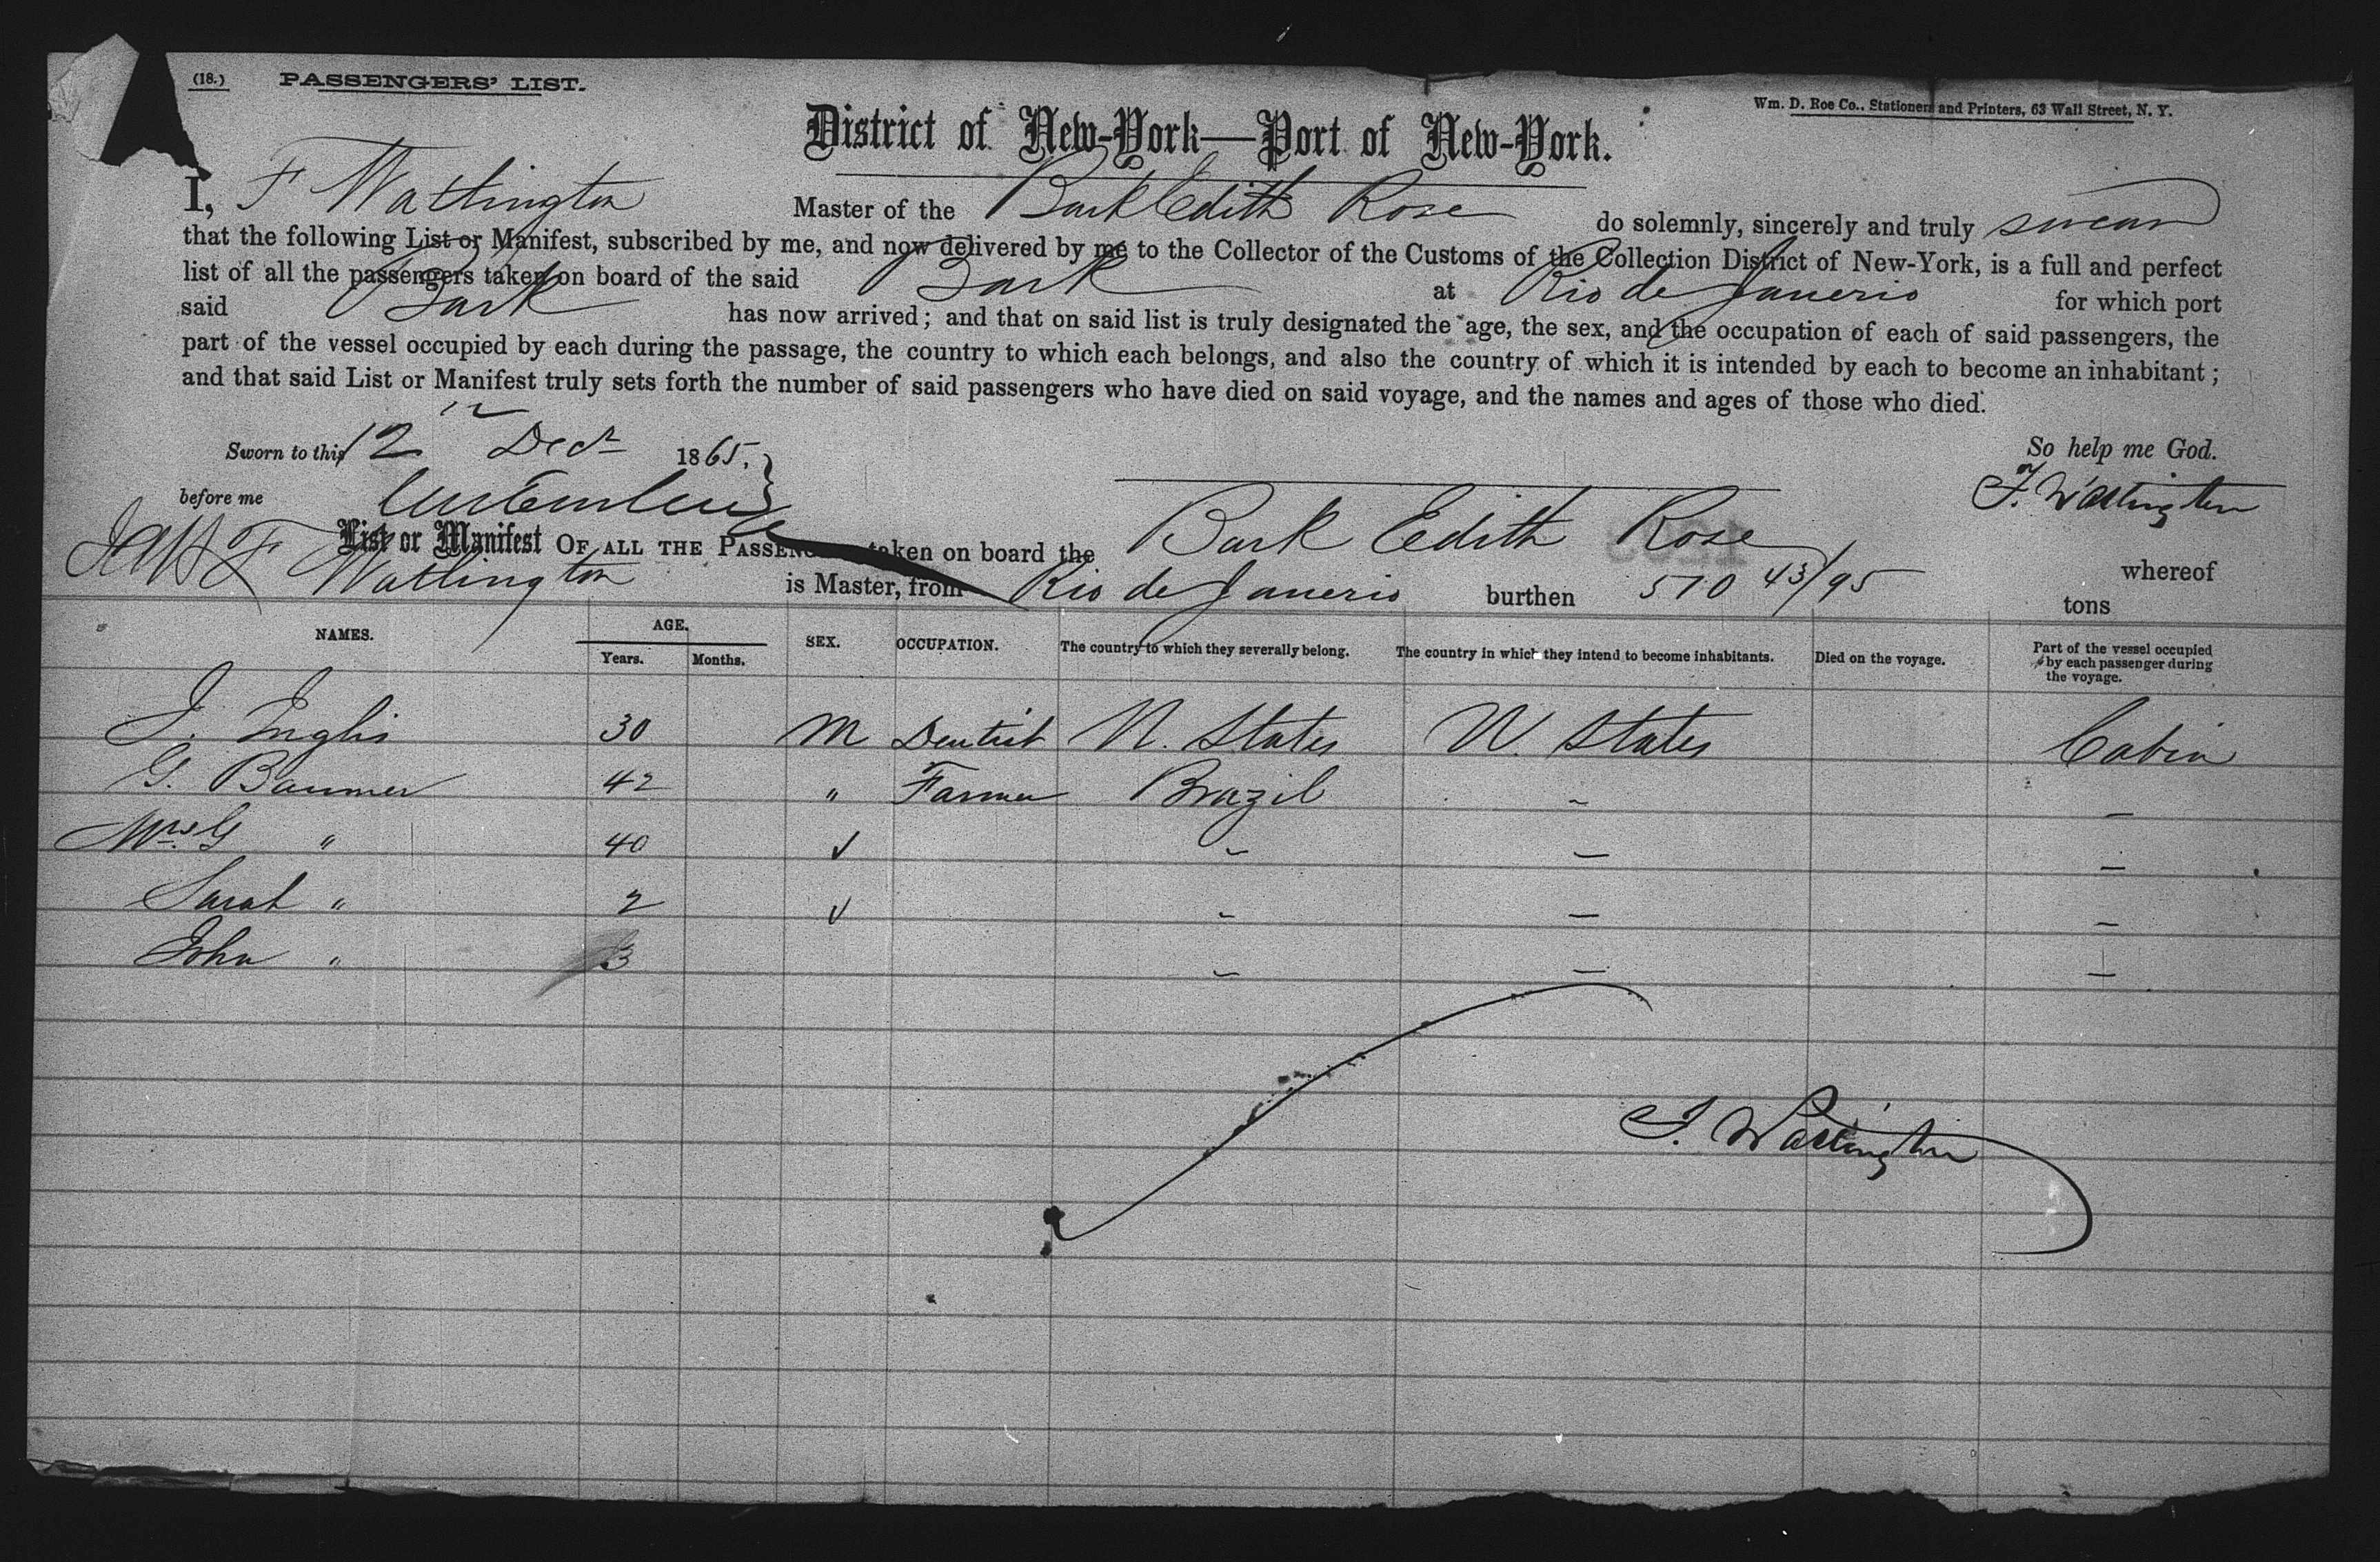 (18.) PASSENGERS' LIST.
Wm. D. Roe Co., Stationers and Printers, 63 Wall Street, N. Y.
District of New-York—Port of New-York.
I, F Watlington Master of the Bark Edith Rose do solemnly, sincerely and truly swear
that the following List or Manifest, subscribed by me, and now delivered by me to the Collector of the Customs of the Collection District of New-York, is a full and perfect
list of all the passengers taken on board of the said Bark at Rio de Janerio for which port
said Bark has now arrived; and that on said list is truly designated the age, the sex, and the occupation of each of said passengers, the
part of the vessel occupied by each during the passage, the country to which each belongs, and also the country of which it is intended by each to become an inhabitant;
and that said List or Manifest truly sets forth the number of said passengers who have died on said voyage, and the names and ages of those who died.
Sworn to this 12 Decr 1865.
So help me God.
before me
F. Watlington
List or Manifest OF ALL THE PASSENGERS taken on board the Bark Edith Rose whereof
F Watlington is Master, from Rio de Janerio burthen 510 43/95 tons
NAMES. AGE. Years. Months. SEX. OCCUPATION. The country to which they severally belong. The country in which they intend to become inhabitants. Died on the voyage. Part of the vessel occupied by each passenger during the voyage.
J. Inglis 30 M Dentist U. States U. States Cabin
G. Baumer 42 " Farmer Brazil - -
Mrs. G " 40 √ - - -
Sarah " 2 √ - - -
John " 3 - - -
F. Watlington